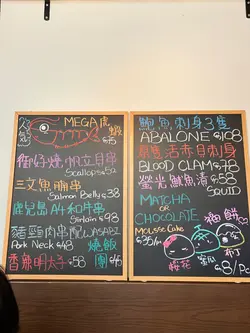 人氣
MEGA虎蝦
帶子燒 帆立貝串
Scallops
三文魚腩串
Salmon Belly $38
鹿兒島A4和牛串
Sirloin $48
豬頸肉串配WASABI
Pork Neck $48 燒飯團
香燒明太子 $58
鮑魚刺身3隻
ABALONE $108
活赤貝刺身
BLOOD CLAM $78
螢光魷魚漬 $58
SQUID
MATCHA or
CHOCOLATE
Mousse Cake
$35/pc
貓餅
桜花
蜜瓜
布丁